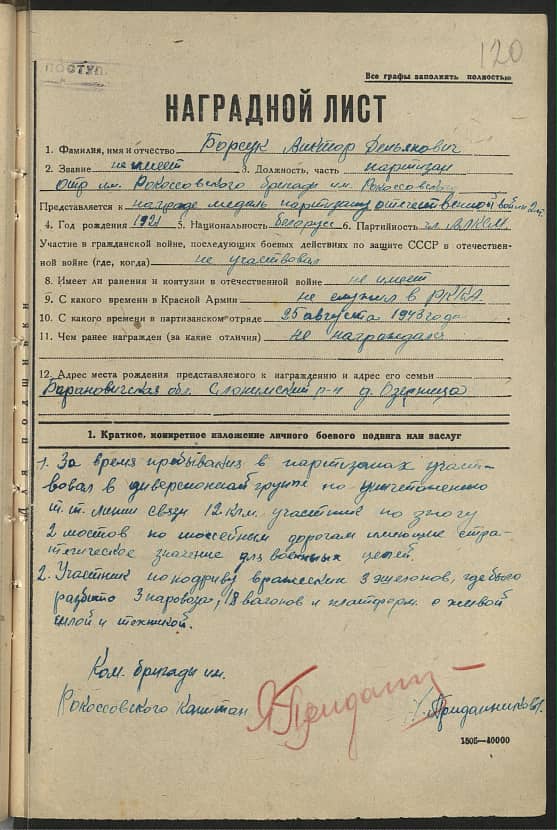 120
ПОСТУП.
Все графы заполнять полностью
НАГРАДНОЙ ЛИСТ
1. Фамилия, имя и отчество Борсук Виктор Демьянович
2. Звание не имеет 3. Должность, часть партизан
отр. им. Рокоссовского бригады им. Рокоссовского
Представляется к награде медаль партизану отечественной войны 2 ст.
4. Год рождения 1921 5. Национальность беларус 6. Партийность чл. ВЛКСМ
Участие в гражданской войне, последующих боевых действиях по защите СССР в отечествен-
ной войне (где, когда) не участвовал
8. Имеет ли ранения и контузии в отечественной войне не имеет
9. С какого времени в Красной Армии не служил в РККА
10. С какого времени в партизанском отряде 25 августа 1943 года
11. Чем ранее награжден (за какие отличия) не награждался
12. Адрес места рождения представляемого к награждению и адрес его семьи
Барановичская обл. Слонимский р-н д. Озерница
Для подшивки
1. Краткое, конкретное изложение личного боевого подвига или заслуг
1. За время пребывания в партизанах участ-
вовал в диверсионной группе по уничтожению
т.т. линии связи 12 клм. участник по
2 мостов по шоссейным дорогам имеющие стра-
тегическое значение для военных целей.
2. Участник по подрыву вражеских 3 эшелонов, где было
разбито 3 паровоза, 18 вагонов и платформ с живой
силой и техникой.
Ком. бригады им.
Рокоссовского Капитан
Приданников
1505—40000